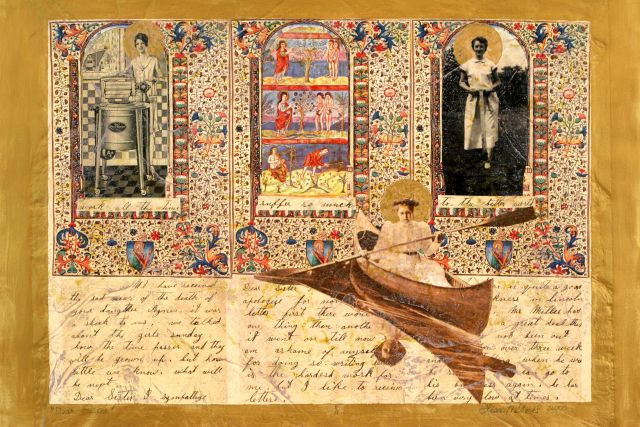 work all the time
suffer so much
to the better
We have received
the sad news of the death of
your daughter Agnes. it was
a shock to us, we talked
about the girls sunday
how the time passes and they
will be grown up. but how
little we know, what will
be next.
Dear Sister I sympathize
Dear Sister
apologize for not
letter first there
one thing then another
it went on till now
am ashame of myself
for doing so. writing
is the hardest work for
me but I like to receive
letters.
is quite a good
kness in Lincoln
Mr
a great deal this
not been out
over three week
when he
can go to
his business again. he has
been very low at times.
"Dear Sister"